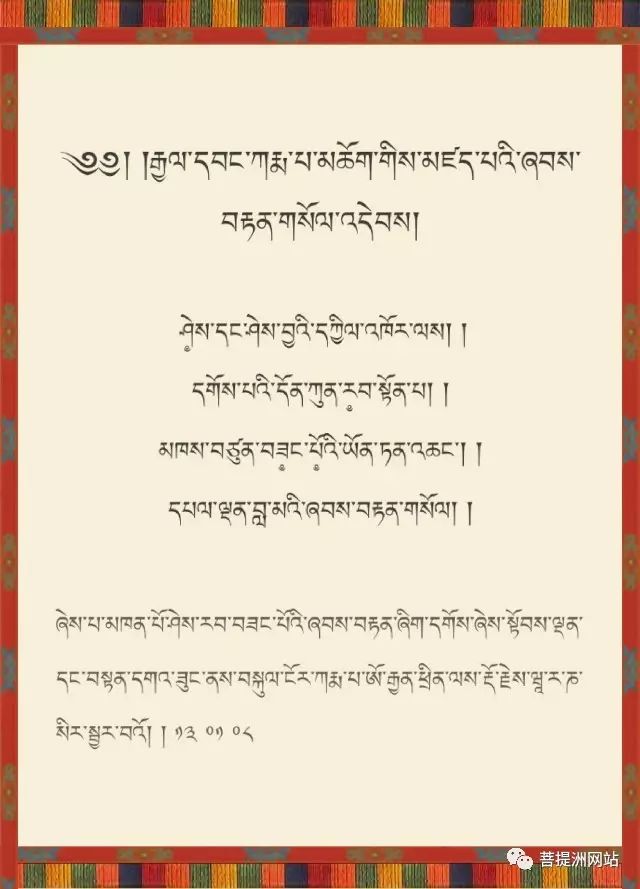 ༄༅། །རྒྱལ་དབང་ཀརྨ་པ་མཆོག་གིས་མཛད་པའི་ཞབས་
བརྟན་གསོལ་འདེབས།
ཤེ༷ས་དང་ཤེས་བྱའི་དཀྱིལ་འཁོར་ལས། །
དགོས་པའི་དོན་ཀུན་ར༷བ་སྟོན་པ། །
མཁས་བཙུན་བཟ༷ང་པོ༷འི་ཡོན་ཏན་འཆང་། །
དཔལ་ལྡན་བླ་མའི་ཞབས་བརྟན་གསོལ། །
ཞེས་པ་མཁན་པོ་ཤེས་རབ་བཟང་པོའི་ཞབས་བརྟན་ཞིག་དགོས་ཞེས་སྟོབས་ལྡན་
དང་བསྟན་དགའ་ཟུང་ནས་བསྐུལ་ངོར་ཀརྨ་པ་ཨོ་རྒྱན་ཕྲིན་ལས་རྡོ་རྗེས་ཝཱ་ར་ཎ་
སིར་སྦྱར་བའོ། ། ༡༣ ༠༡ ༠༨
菩提洲网站